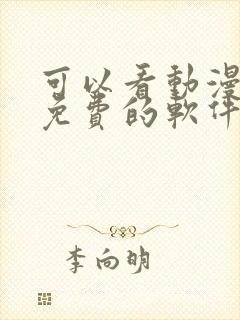 可以看動漫
免費的軟件
李向明